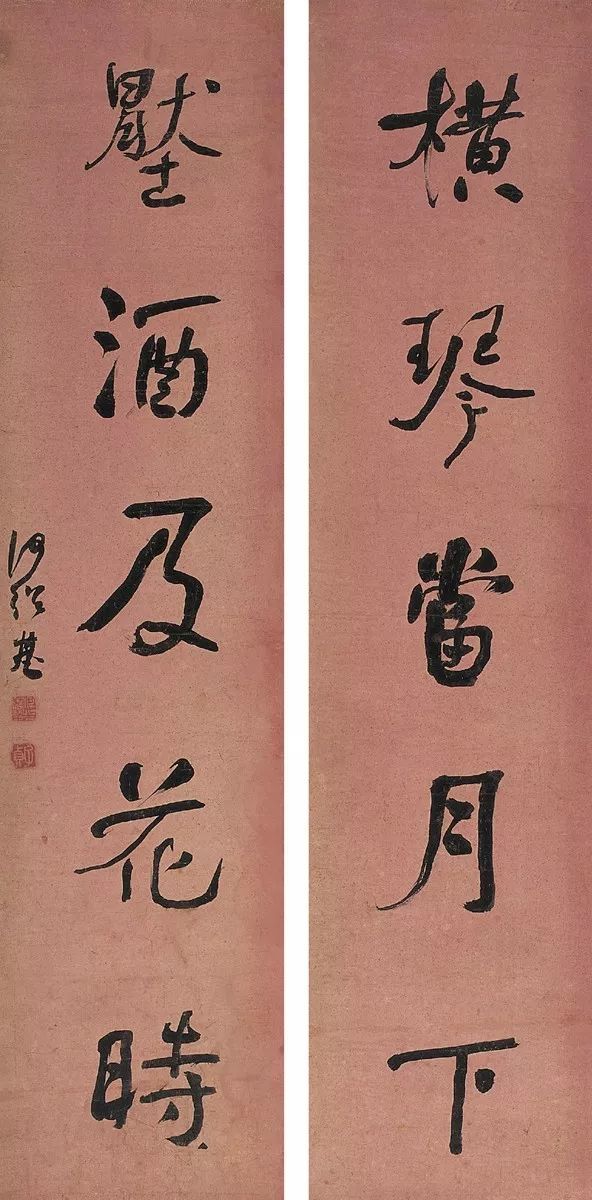 橫琴當月下
壓酒及花時
何紹基